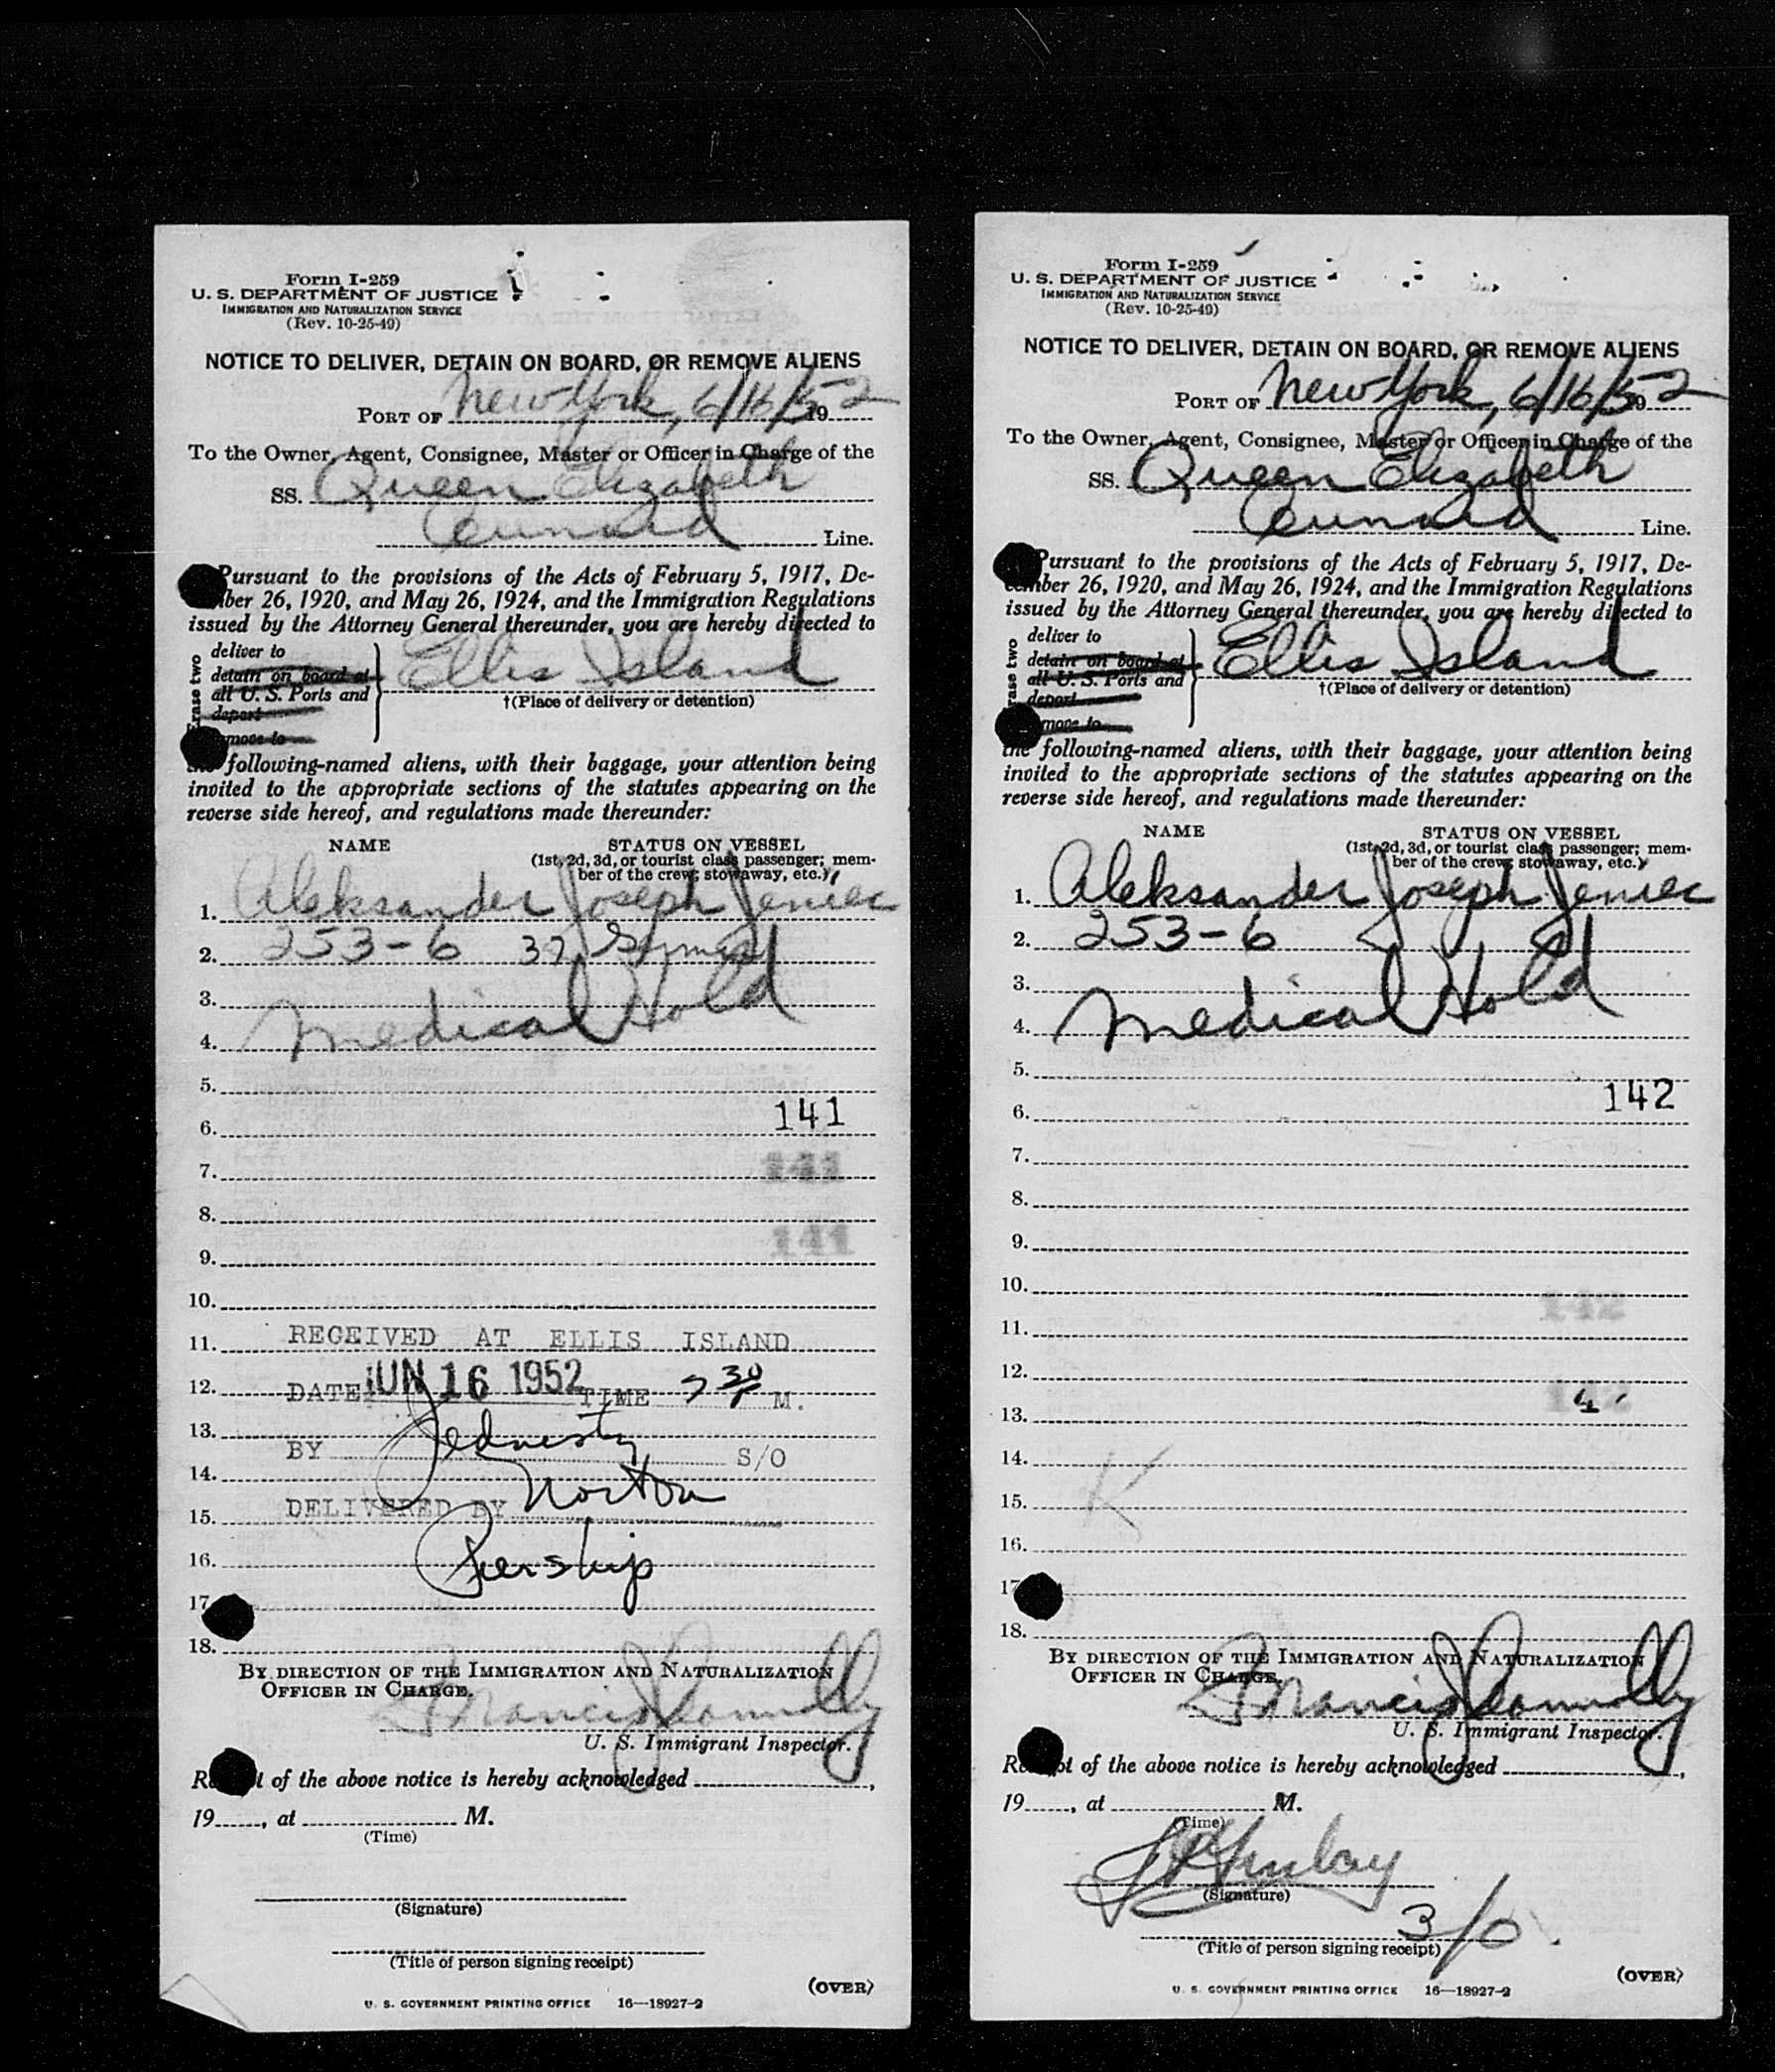 Form I-259
U. S. DEPARTMENT OF JUSTICE
IMMIGRATION AND NATURALIZATION SERVICE
(Rev. 10-25-49)
NOTICE TO DELIVER, DETAIN ON BOARD, OR REMOVE ALIENS
PORT OF New York, 6/16/52 19
To the Owner, Agent, Consignee, Master or Officer in Charge of the
SS. Queen Elizabeth
Cunard Line.
Pursuant to the provisions of the Acts of February 5, 1917, De-
ber 26, 1920, and May 26, 1924, and the Immigration Regulations
issued by the Attorney General thereunder, you are hereby directed to
Erase two
deliver to
detain on board at
all U. S. Ports and
deport
move to
Ellis Island
†(Place of delivery or detention)
the following-named aliens, with their baggage, your attention being
invited to the appropriate sections of the statutes appearing on the
reverse side hereof, and regulations made thereunder:
NAME STATUS ON VESSEL
(1st, 2d, 3d, or tourist class passenger; mem-
ber of the crew; stowaway, etc.)
1. Aleksander Joseph Jeniec
2. 253-6 37
3.
4. Medical Hold
5.
6. 141
7. 141
8.
9. 141
10.
11. RECEIVED AT ELLIS ISLAND
12. DATE JUN 16 1952 TIME 7 30 M.
13.
BY S/O
14.
15. DELIVERED BY Norton
16. Pership
17.
18.
BY DIRECTION OF THE IMMIGRATION AND NATURALIZATION
OFFICER IN CHARGE.
Francis J Connolly
U. S. Immigrant Inspector.
Receipt of the above notice is hereby acknowledged
19, at M.
(Time)
(Signature)
(Title of person signing receipt)
(OVER)
U. S. GOVERNMENT PRINTING OFFICE 16—18927-2
Form I-259
U. S. DEPARTMENT OF JUSTICE
IMMIGRATION AND NATURALIZATION SERVICE
(Rev. 10-25-49)
NOTICE TO DELIVER, DETAIN ON BOARD, OR REMOVE ALIENS
PORT OF New York, 6/16/52 19
To the Owner, Agent, Consignee, Master or Officer in Charge of the
SS. Queen Elizabeth
Cunard Line.
Pursuant to the provisions of the Acts of February 5, 1917, De-
cember 26, 1920, and May 26, 1924, and the Immigration Regulations
issued by the Attorney General thereunder, you are hereby directed to
Erase two
deliver to
detain on board at
all U. S. Ports and
deport
move to
Ellis Island
†(Place of delivery or detention)
the following-named aliens, with their baggage, your attention being
invited to the appropriate sections of the statutes appearing on the
reverse side hereof, and regulations made thereunder:
NAME STATUS ON VESSEL
(1st, 2d, 3d, or tourist class passenger; mem-
ber of the crew; stowaway, etc.)
1. Aleksander Joseph Jeniec
2. 253-6
3.
4. Medical Hold
5.
6. 142
7.
8.
9.
10.
142
11.
12.
142
13.
14.
K
15.
16.
17
18.
BY DIRECTION OF THE IMMIGRATION AND NATURALIZATION
OFFICER IN CHARGE.
Francis J Connolly
U. S. Immigrant Inspector.
Receipt of the above notice is hereby acknowledged
19, at M.
(Time)
(Signature)
3/0.
(Title of person signing receipt)
(OVER)
U. S. GOVERNMENT PRINTING OFFICE 16—18927-2